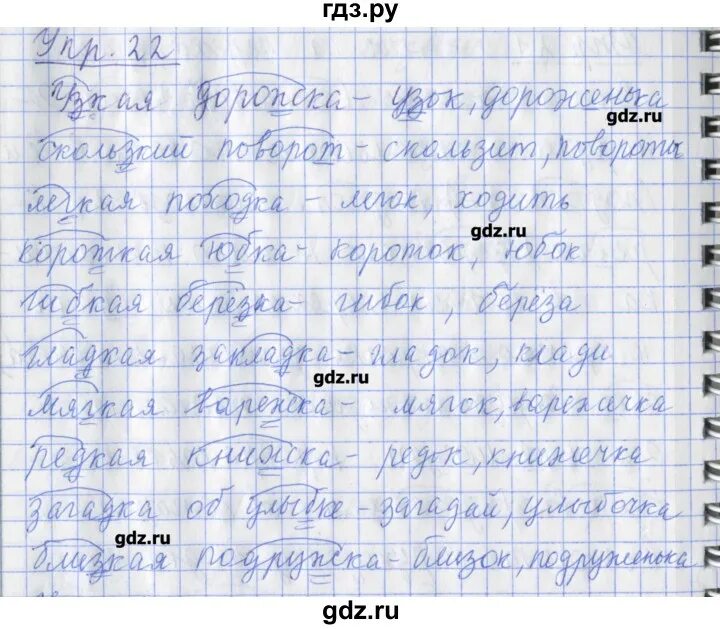 гдз.ру
Упр. 22
Узкая дорожка – узок, дороженька
gdz.ru
скользкий поворот – скользит, повороты
лёгкая походка – легок, ходить
gdz.ru
короткая юбка – короток, юбок
гибкая берёзка – гибок, берёза
гладкая закладка – гладок, клади
gdz.ru
мягкая варежка – мягок, варежичка
редкая книжка – редок, книжечка
загадка об улыбке – загадай, улыбочка
gdz.ru
gdz.ru
близкая подружка – близок, подруженька
gdz.ru